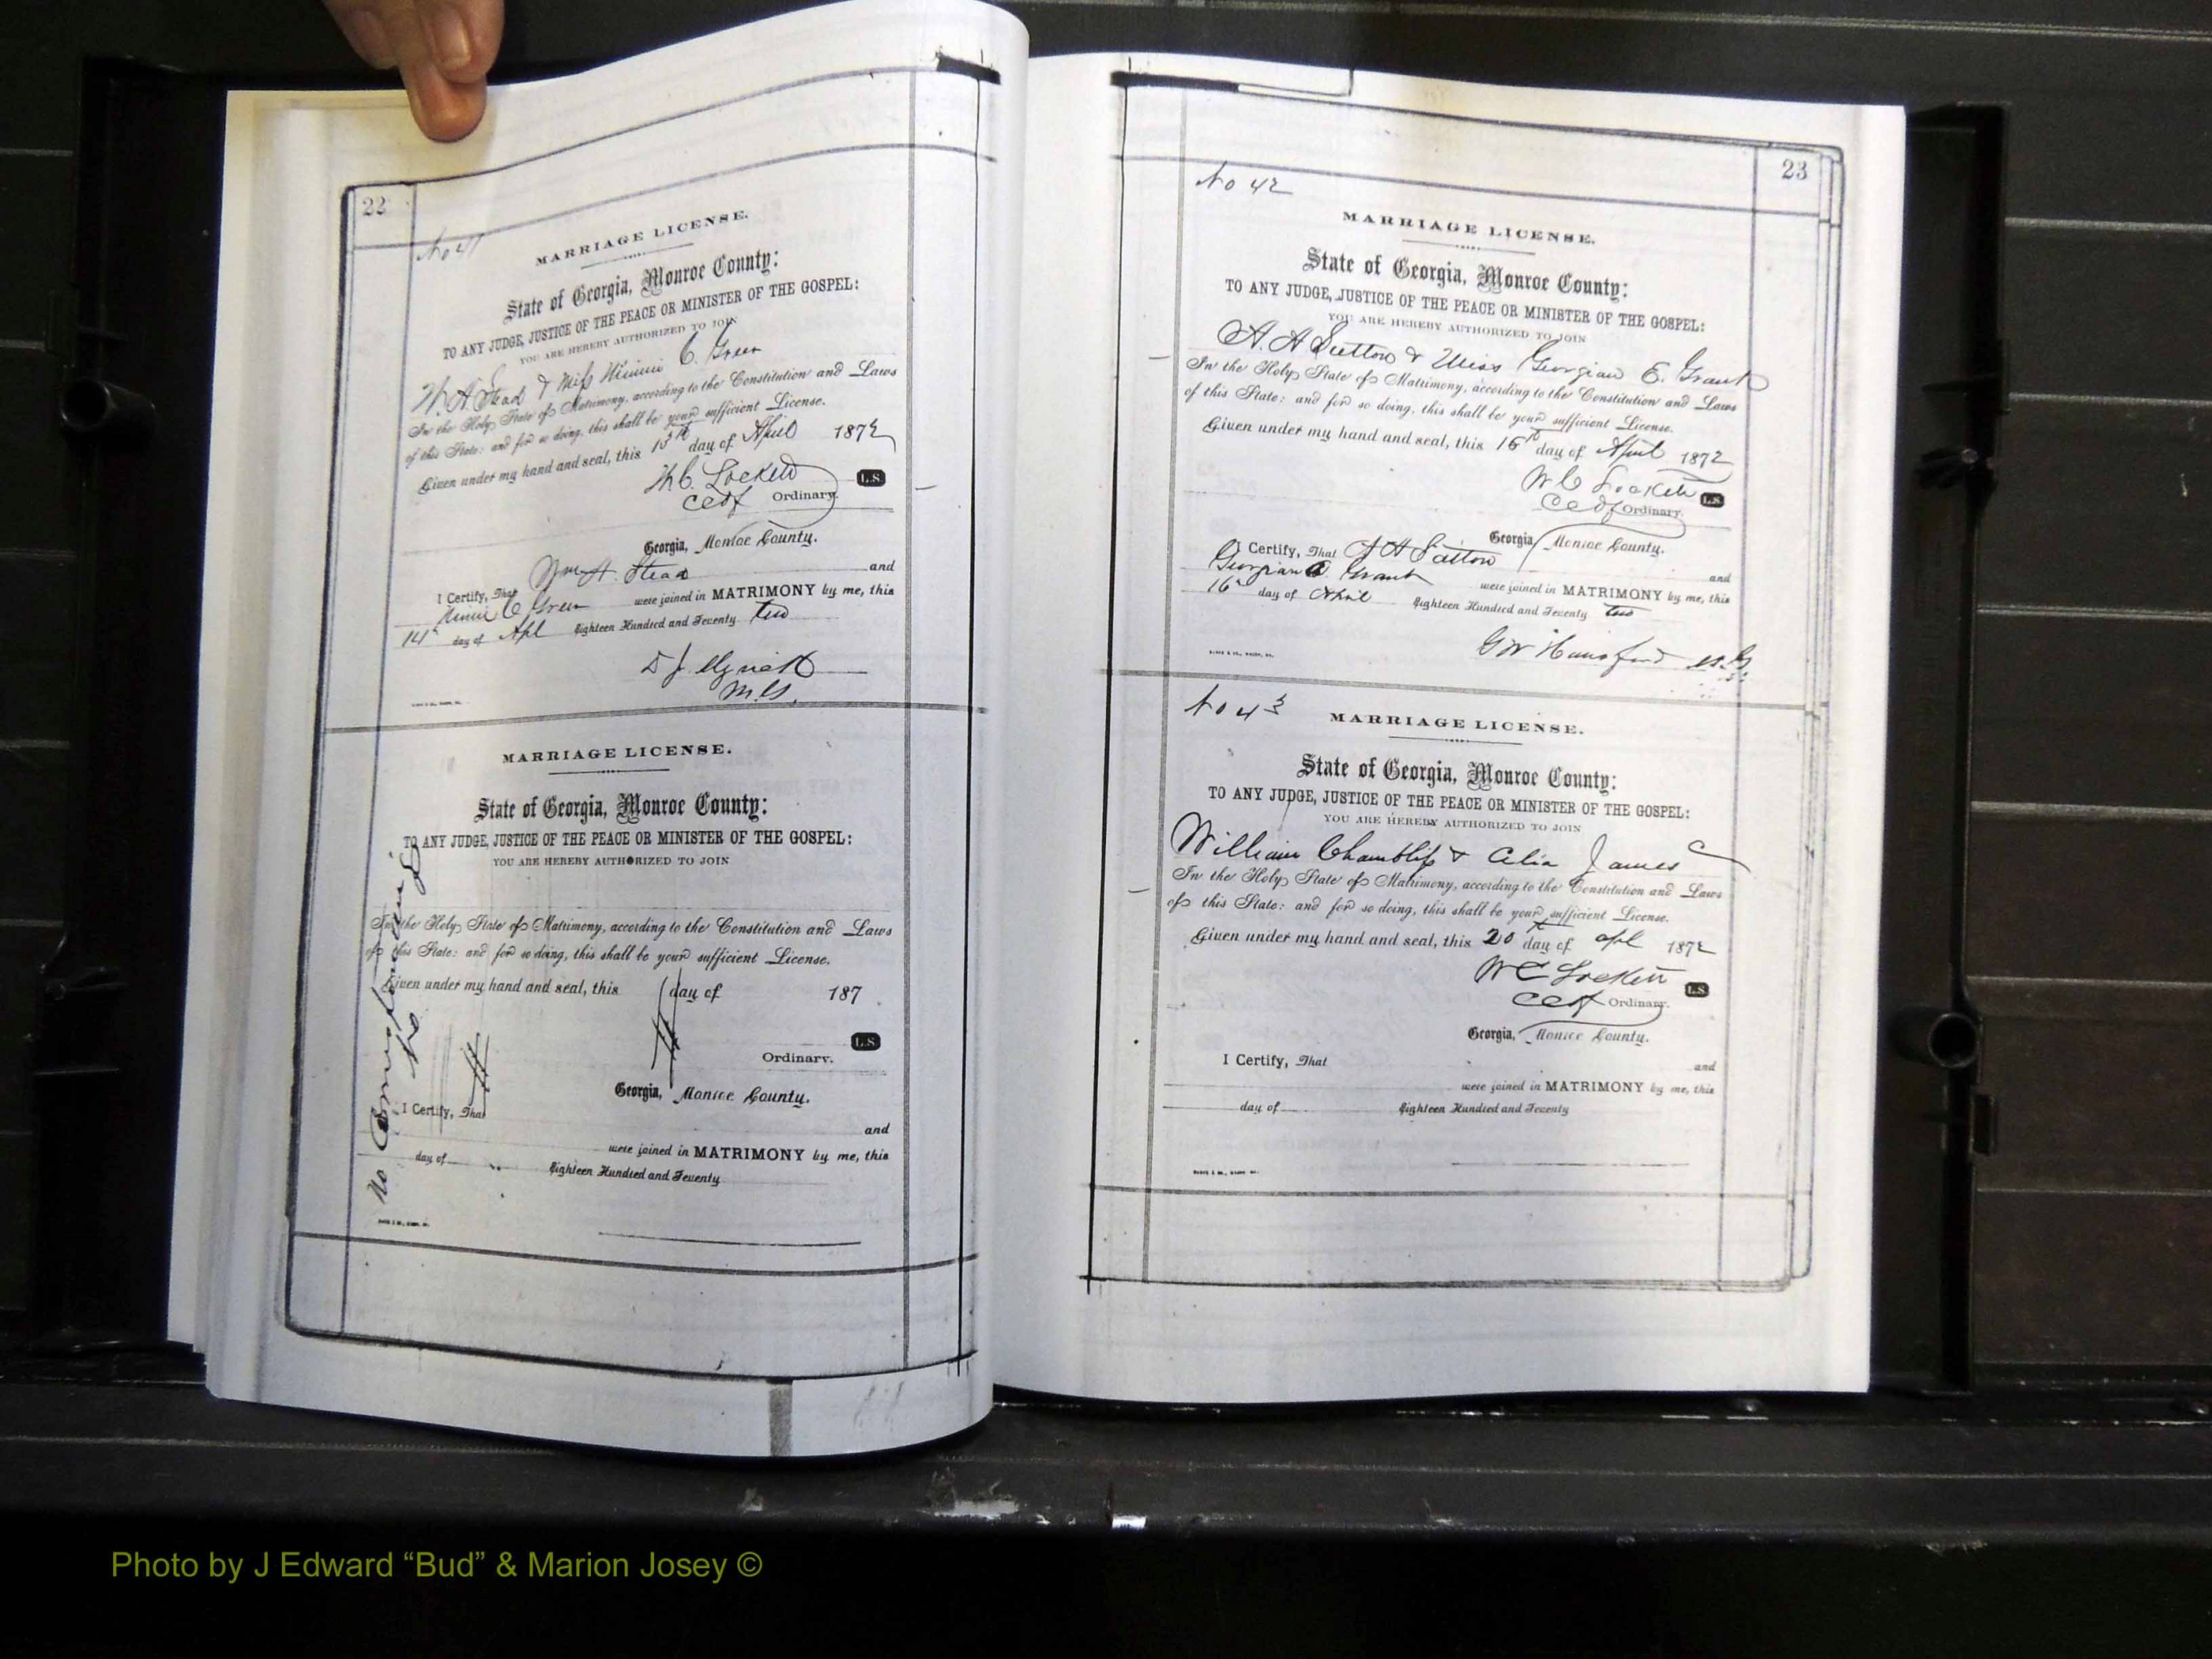 22
No 41
MARRIAGE LICENSE.
State of Georgia, Monroe County:
TO ANY JUDGE, JUSTICE OF THE PEACE OR MINISTER OF THE GOSPEL:
YOU ARE HEREBY AUTHORIZED TO JOIN
W. A. Stead & Miss Winnie C. Green
In the Holy State of Matrimony, according to the Constitution and Laws
of this State: and for so doing, this shall be your sufficient License.
Given under my hand and seal, this 13th day of April 1872
W C. Lockett L.S.
Ordinary.
Georgia, Monroe County.
I Certify, That Wm A. Stead and
C Green were joined in MATRIMONY by me, this
14th day of Apl Eighteen Hundred and Seventy two
D J Myrick
M.G.
MARRIAGE LICENSE.
State of Georgia, Monroe County:
TO ANY JUDGE, JUSTICE OF THE PEACE OR MINISTER OF THE GOSPEL:
YOU ARE HEREBY AUTHORIZED TO JOIN
In the Holy State of Matrimony, according to the Constitution and Laws
of this State: and for so doing, this shall be your sufficient License.
Given under my hand and seal, this day of 187
L.S.
Ordinary.
Georgia, Monroe County.
I Certify, That
and
were joined in MATRIMONY by me, this
day of Eighteen Hundred and Seventy
No
23
No 42
MARRIAGE LICENSE.
State of Georgia, Monroe County:
TO ANY JUDGE, JUSTICE OF THE PEACE OR MINISTER OF THE GOSPEL:
YOU ARE HEREBY AUTHORIZED TO JOIN
A. A Sutton & Miss Georgian E. Grant
In the Holy State of Matrimony, according to the Constitution and Laws
of this State: and for so doing, this shall be your sufficient License.
Given under my hand and seal, this 16th day of April 1872
W C Lockett L.S.
Ordinary.
Georgia, Monroe County.
I Certify, That A A Sutton and
Georgian Grant were joined in MATRIMONY by me, this
16th day of April Eighteen Hundred and Seventy two
G W Hansford M.G.
No 43
MARRIAGE LICENSE.
State of Georgia, Monroe County:
TO ANY JUDGE, JUSTICE OF THE PEACE OR MINISTER OF THE GOSPEL:
YOU ARE HEREBY AUTHORIZED TO JOIN
William Chambliss & Celia James C
In the Holy State of Matrimony, according to the Constitution and Laws
of this State: and for so doing, this shall be your sufficient License.
Given under my hand and seal, this 20th day of Apl 1872
W C Lockett L.S.
Ordinary.
Georgia, Monroe County.
I Certify, That
and
were joined in MATRIMONY by me, this
day of Eighteen Hundred and Seventy
Photo by J Edward “Bud” & Marion Josey ©